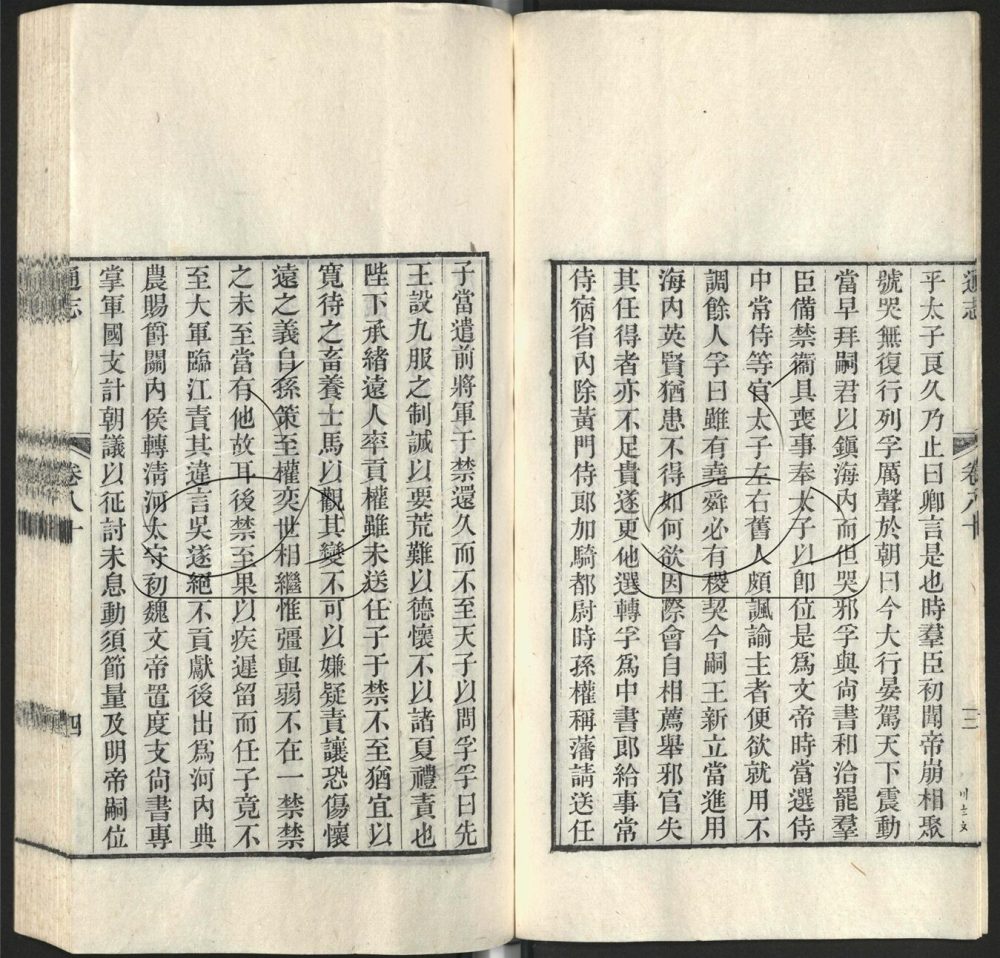 通志
卷八十
三
乎太子良久乃止曰卿言是也時羣臣初聞帝崩相聚
號哭無復行列孚厲聲於朝曰今大行晏駕天下震動
當早拜嗣君以鎭海內而但哭邪孚與尙書和洽罷羣
臣備禁衞具喪事奉太子以卽位是爲文帝時當選侍
中常侍等官太子左右舊人頗諷諭主者便欲就用不
調餘人孚曰雖有堯舜必有稷契今嗣王新立當進用
海內英賢猶患不得如何欲因際會自相薦舉邪官失
其任得者亦不足貴遂更他選轉孚爲中書郞給事常
侍宿省內除黃門侍郞加騎都尉時孫權稱藩請送任
子當遣前將軍于禁還久而不至天子以問孚孚曰先
王設九服之制誠以要荒難以德懷不以諸夏禮責也
陛下承緒遠人率貢權雖未送任子于禁不至猶宜以
寬待之畜養士馬以觀其變不可以嫌疑責讓恐傷懷
遠之義自孫策至權奕世相繼惟彊與弱不在一禁禁
之未至當有他故耳後禁至果以疾遲留而任子竟不
至大軍臨江責其違言吳遂絕不貢獻後出爲河內典
農賜爵關內侯轉淸河太守初魏文帝置度支尙書專
掌軍國支計朝議以征討未息動須節量及明帝嗣位
通志
卷八十
四